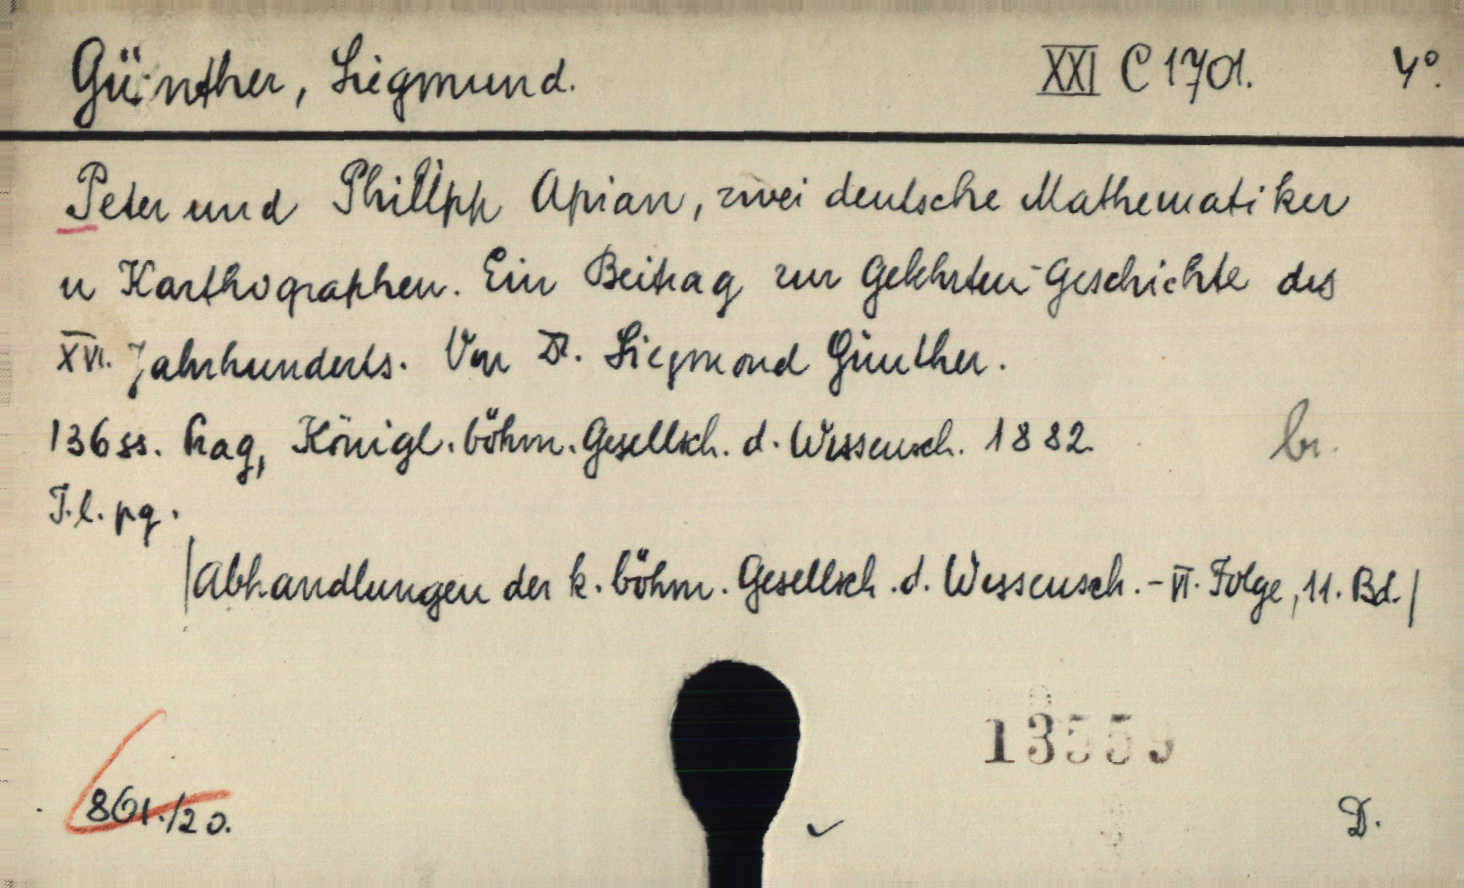 Günther, Siegmund. XXI C 1701. 4°.
Peter und Philipp Apian, zwei deutsche Mathematiker
u Karthographen. Ein Beitrag zur Gelehrten-Geschichte des
XVI. Jahrhunderts. Von Dr. Siegmond Günther.
136 ss. Prag, Königl. böhm. Gesellsch. d. Wissensch. 1882. br.
T. l. pg.
/Abhandlungen der k. böhm. Gesellsch. d. Wissensch. - VI. Folge, 11. Bd./
13555
861./20.
D.